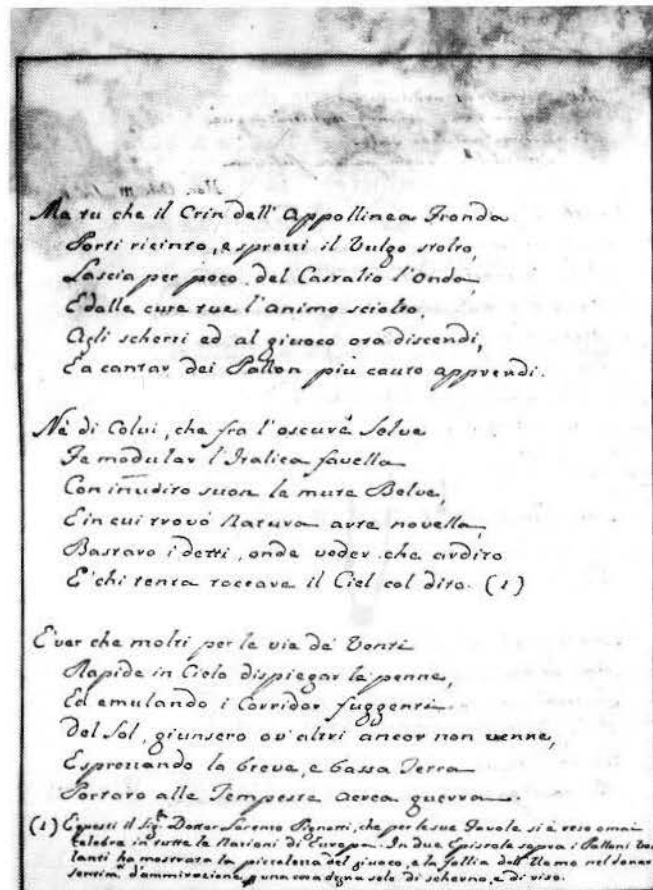 Ma tu che il Crin dell' Appollinea Fronda
Porti ricinto, e sprezzi il Vulgo stolto,
Lascia per poco del Castalio l'Onda,
E dalle cure tue l'animo sciolto,
Agli scherzi ed al giuoco ora discendi,
E a cantar dei Pallon più cauto apprendi.
Nè di Colui, che fra l'oscure Selve
Fe modular l'Italica favella
Con inudito suon le mute Belve,
E in cui trovò Natura arte novella,
Bastaro i detti, onde veder che ardito
E' chi tenta toccare il Ciel col dito. (1)
E' ver che molti per le vie de' Venti
Rapide in Cielo dispiegar le penne,
Ed emulando i Corridor fuggenti
Del Sol, giunsero ov' altri ancor non venne,
E sprezzando la breve, e bassa Terra
Portaro alle Tempeste aerea guerra.
(1) E questi il Sig.r Dottor Lorenzo Pignotti, che per le sue Favole si è reso omai
celebre in tutte le Nazioni di Europa. In due Epistole sopra i Palloni Vo=
lanti ha mostrata la piccolezza del giuoco, e la follia dell' Uomo nel donar
d'ammirazione una cosa degna solo di scherno, e di riso.